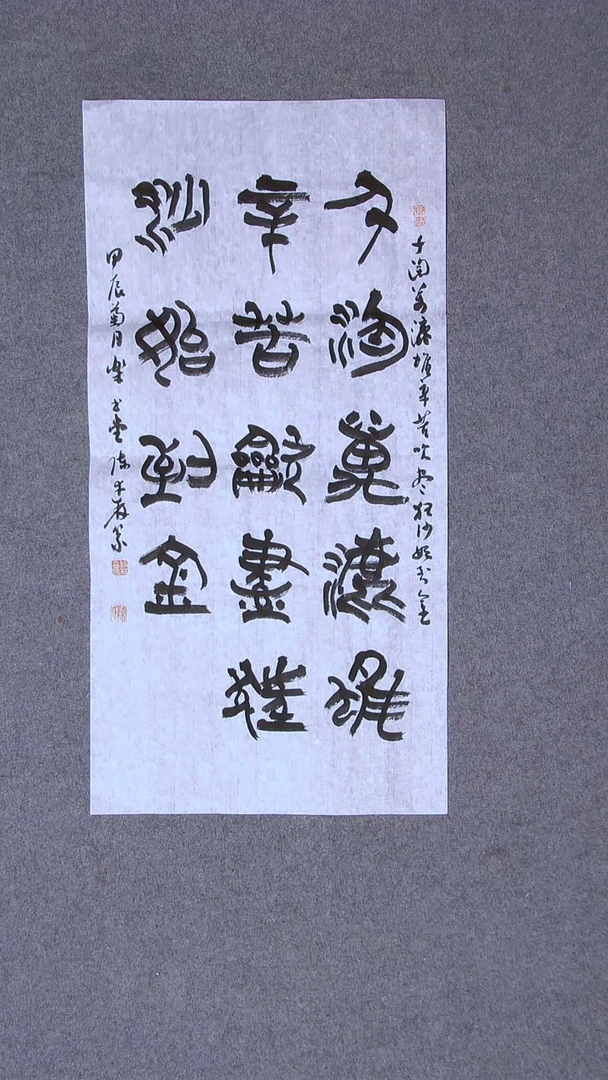 千淘万漉雖辛苦吹尽狂沙始到金
千淘萬漉雖
辛苦龡盡狂
沙始到金
甲辰菊月樂书堂陈